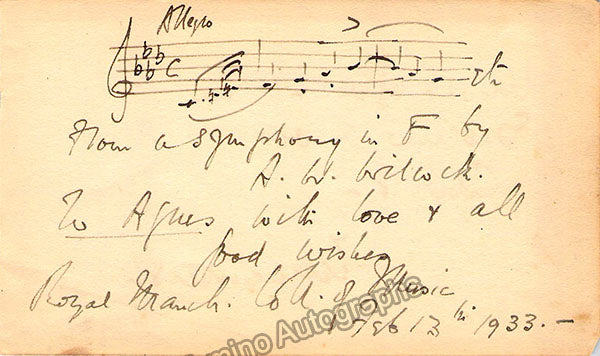 Allegro
etc
From a Symphony in F by
A. W. Wilcock.
To Agnes with love & all
good wishes
Royal Manch. Coll. of Music
Feb 13th 1933.-
mino Autographs